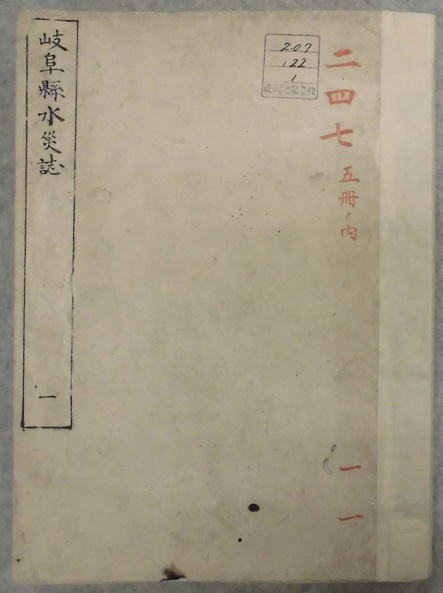 二四七
五冊ノ内
一一
207
122
1
岐阜縣水災誌
一